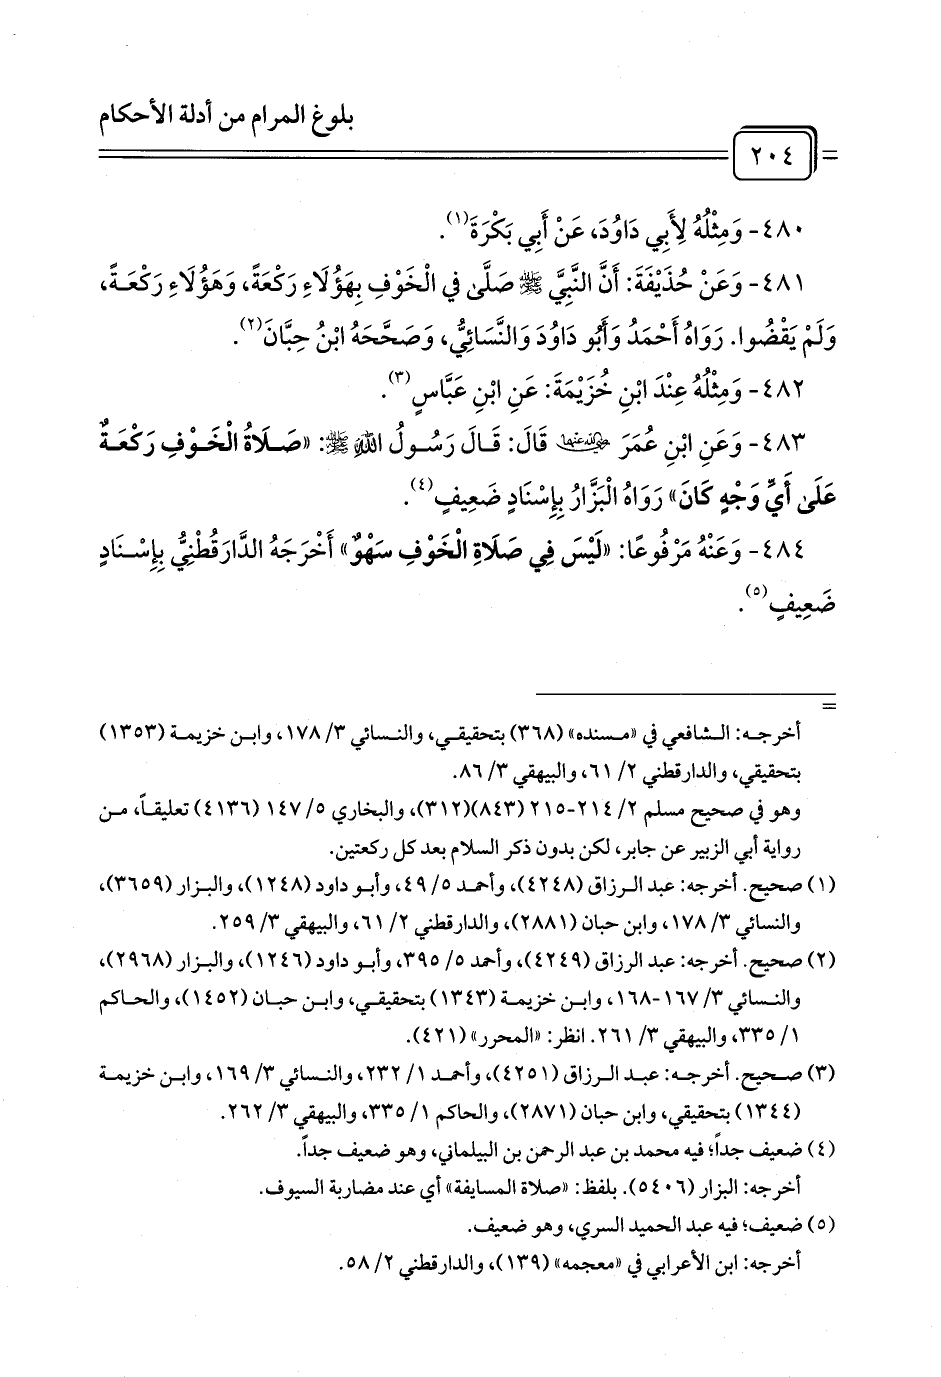 بلوغ المرام من أدلة الأحكام
٢٠٤
٤٨٠- وَمِثْلُهُ لِأَبِي دَاوُدَ، عَنْ أَبِي بَكْرَةَ(١).
٤٨١- وَعَنْ حُذَيْفَةَ: أَنَّ النَّبِيَّ ﷺ صَلَّى فِي الْخَوْفِ بِهَؤُلَاءِ رَكْعَةً، وَهَؤُلَاءِ رَكْعَةً،
وَلَمْ يَقْضُوا. رَوَاهُ أَحْمَدُ وَأَبُو دَاوُدَ وَالنَّسَائِيُّ، وَصَحَّحَهُ ابْنُ حِبَّانَ(٢).
٤٨٢- وَمِثْلُهُ عِنْدَ ابْنِ خُزَيْمَةَ: عَنِ ابْنِ عَبَّاسٍ(٣).
٤٨٣- وَعَنِ ابْنِ عُمَرَ رضي الله عنهما قَالَ: قَالَ رَسُولُ اللهِ ﷺ: «صَلَاةُ الْخَوْفِ رَكْعَةٌ
عَلَى أَيِّ وَجْهٍ كَانَ» رَوَاهُ الْبَزَّارُ بِإِسْنَادٍ ضَعِيفٍ(٤).
٤٨٤- وَعَنْهُ مَرْفُوعًا: «لَيْسَ فِي صَلَاةِ الْخَوْفِ سَهْوٌ» أَخْرَجَهُ الدَّارَقُطْنِيُّ بِإِسْنَادٍ
ضَعِيفٍ(٥).
=
أخرجه: الشافعي في «مسنده» (٣٦٨) بتحقيقي، والنسائي ٣/ ١٧٨، وابن خزيمة (١٣٥٣)
بتحقيقي، والدارقطني ٢/ ٦١، والبيهقي ٣/ ٨٦.
وهو في صحيح مسلم ٢/ ٢١٤-٢١٥ (٨٤٣)(٣١٢)، والبخاري ٥/ ١٤٧ (٤١٣٦) تعليقاً، من
رواية أبي الزبير عن جابر، لكن بدون ذكر السلام بعد كل ركعتين.
(١) صحيح. أخرجه: عبد الرزاق (٤٢٤٨)، وأحمد ٥/ ٤٩، وأبو داود (١٢٤٨)، والبزار (٣٦٥٩)،
والنسائي ٣/ ١٧٨، وابن حبان (٢٨٨١)، والدارقطني ٢/ ٦١، والبيهقي ٣/ ٢٥٩.
(٢) صحيح. أخرجه: عبد الرزاق (٤٢٤٩)، وأحمد ٥/ ٣٩٥، وأبو داود (١٢٤٦)، والبزار (٢٩٦٨)،
والنسائي ٣/ ١٦٧-١٦٨، وابن خزيمة (١٣٤٣) بتحقيقي، وابن حبان (١٤٥٢)، والحاكم
١/ ٣٣٥، والبيهقي ٣/ ٢٦١. انظر: «المحرر» (٤٢١).
(٣) صحيح. أخرجه: عبد الرزاق (٤٢٥١)، وأحمد ١/ ٢٣٢، والنسائي ٣/ ١٦٩، وابن خزيمة
(١٣٤٤) بتحقيقي، وابن حبان (٢٨٧١)، والحاكم ١/ ٣٣٥، والبيهقي ٣/ ٢٦٢.
(٤) ضعيف جداً؛ فيه محمد بن عبد الرحمن بن البيلماني، وهو ضعيف جداً.
أخرجه: البزار (٥٤٠٦). بلفظ: «صلاة المسايفة» أي عند مضاربة السيوف.
(٥) ضعيف؛ فيه عبد الحميد السري، وهو ضعيف.
أخرجه: ابن الأعرابي في «معجمه» (١٣٩)، والدارقطني ٢/ ٥٨.